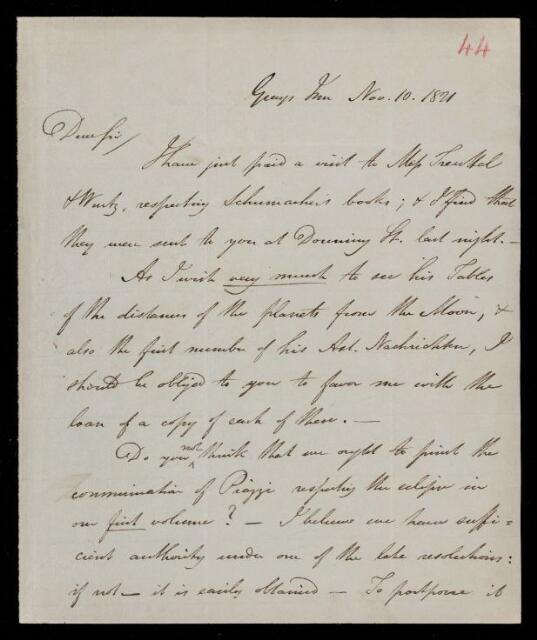 44
Grays Inn Nov. 10. 1821
Dear Sir/
I have just paid a visit to Messrs Treuttel
& Wurtz, respecting Schumacher's books; & I find that
they were sent to you at Downing St. last night. —
As I wish very much to see his Tables
of the distances of the planets from the Moon, &
also the first number of his Ast. Nachrichten, I
should be obliged to you to favor me with the
loan of a copy of each of these. —
Do you not think that we ought to print the
communication of Piazzi respecting the eclipse in
our first volume? — I believe we have suffi-
cient authority under one of the late resolutions:
if not — it is easily obtained — To postpone it